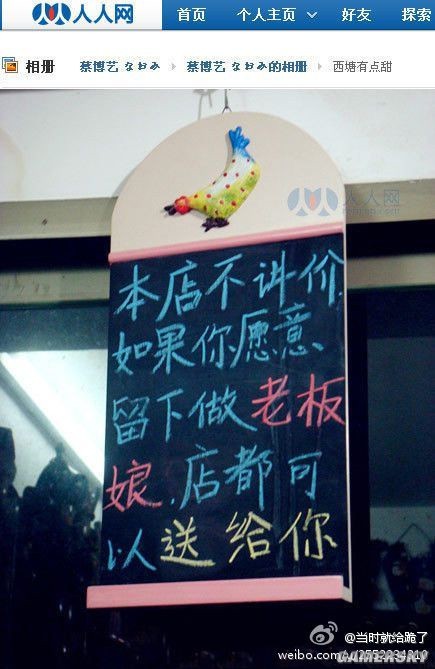 人人网
首页
个人主页
好友
探索
相册
蔡博艺 なおみ
蔡博艺 なおみ的相册
西塘有点甜
人人网
本店不讲价
如果你愿意
留下做老板
娘.店都可
以送给你
@当时就给跪了